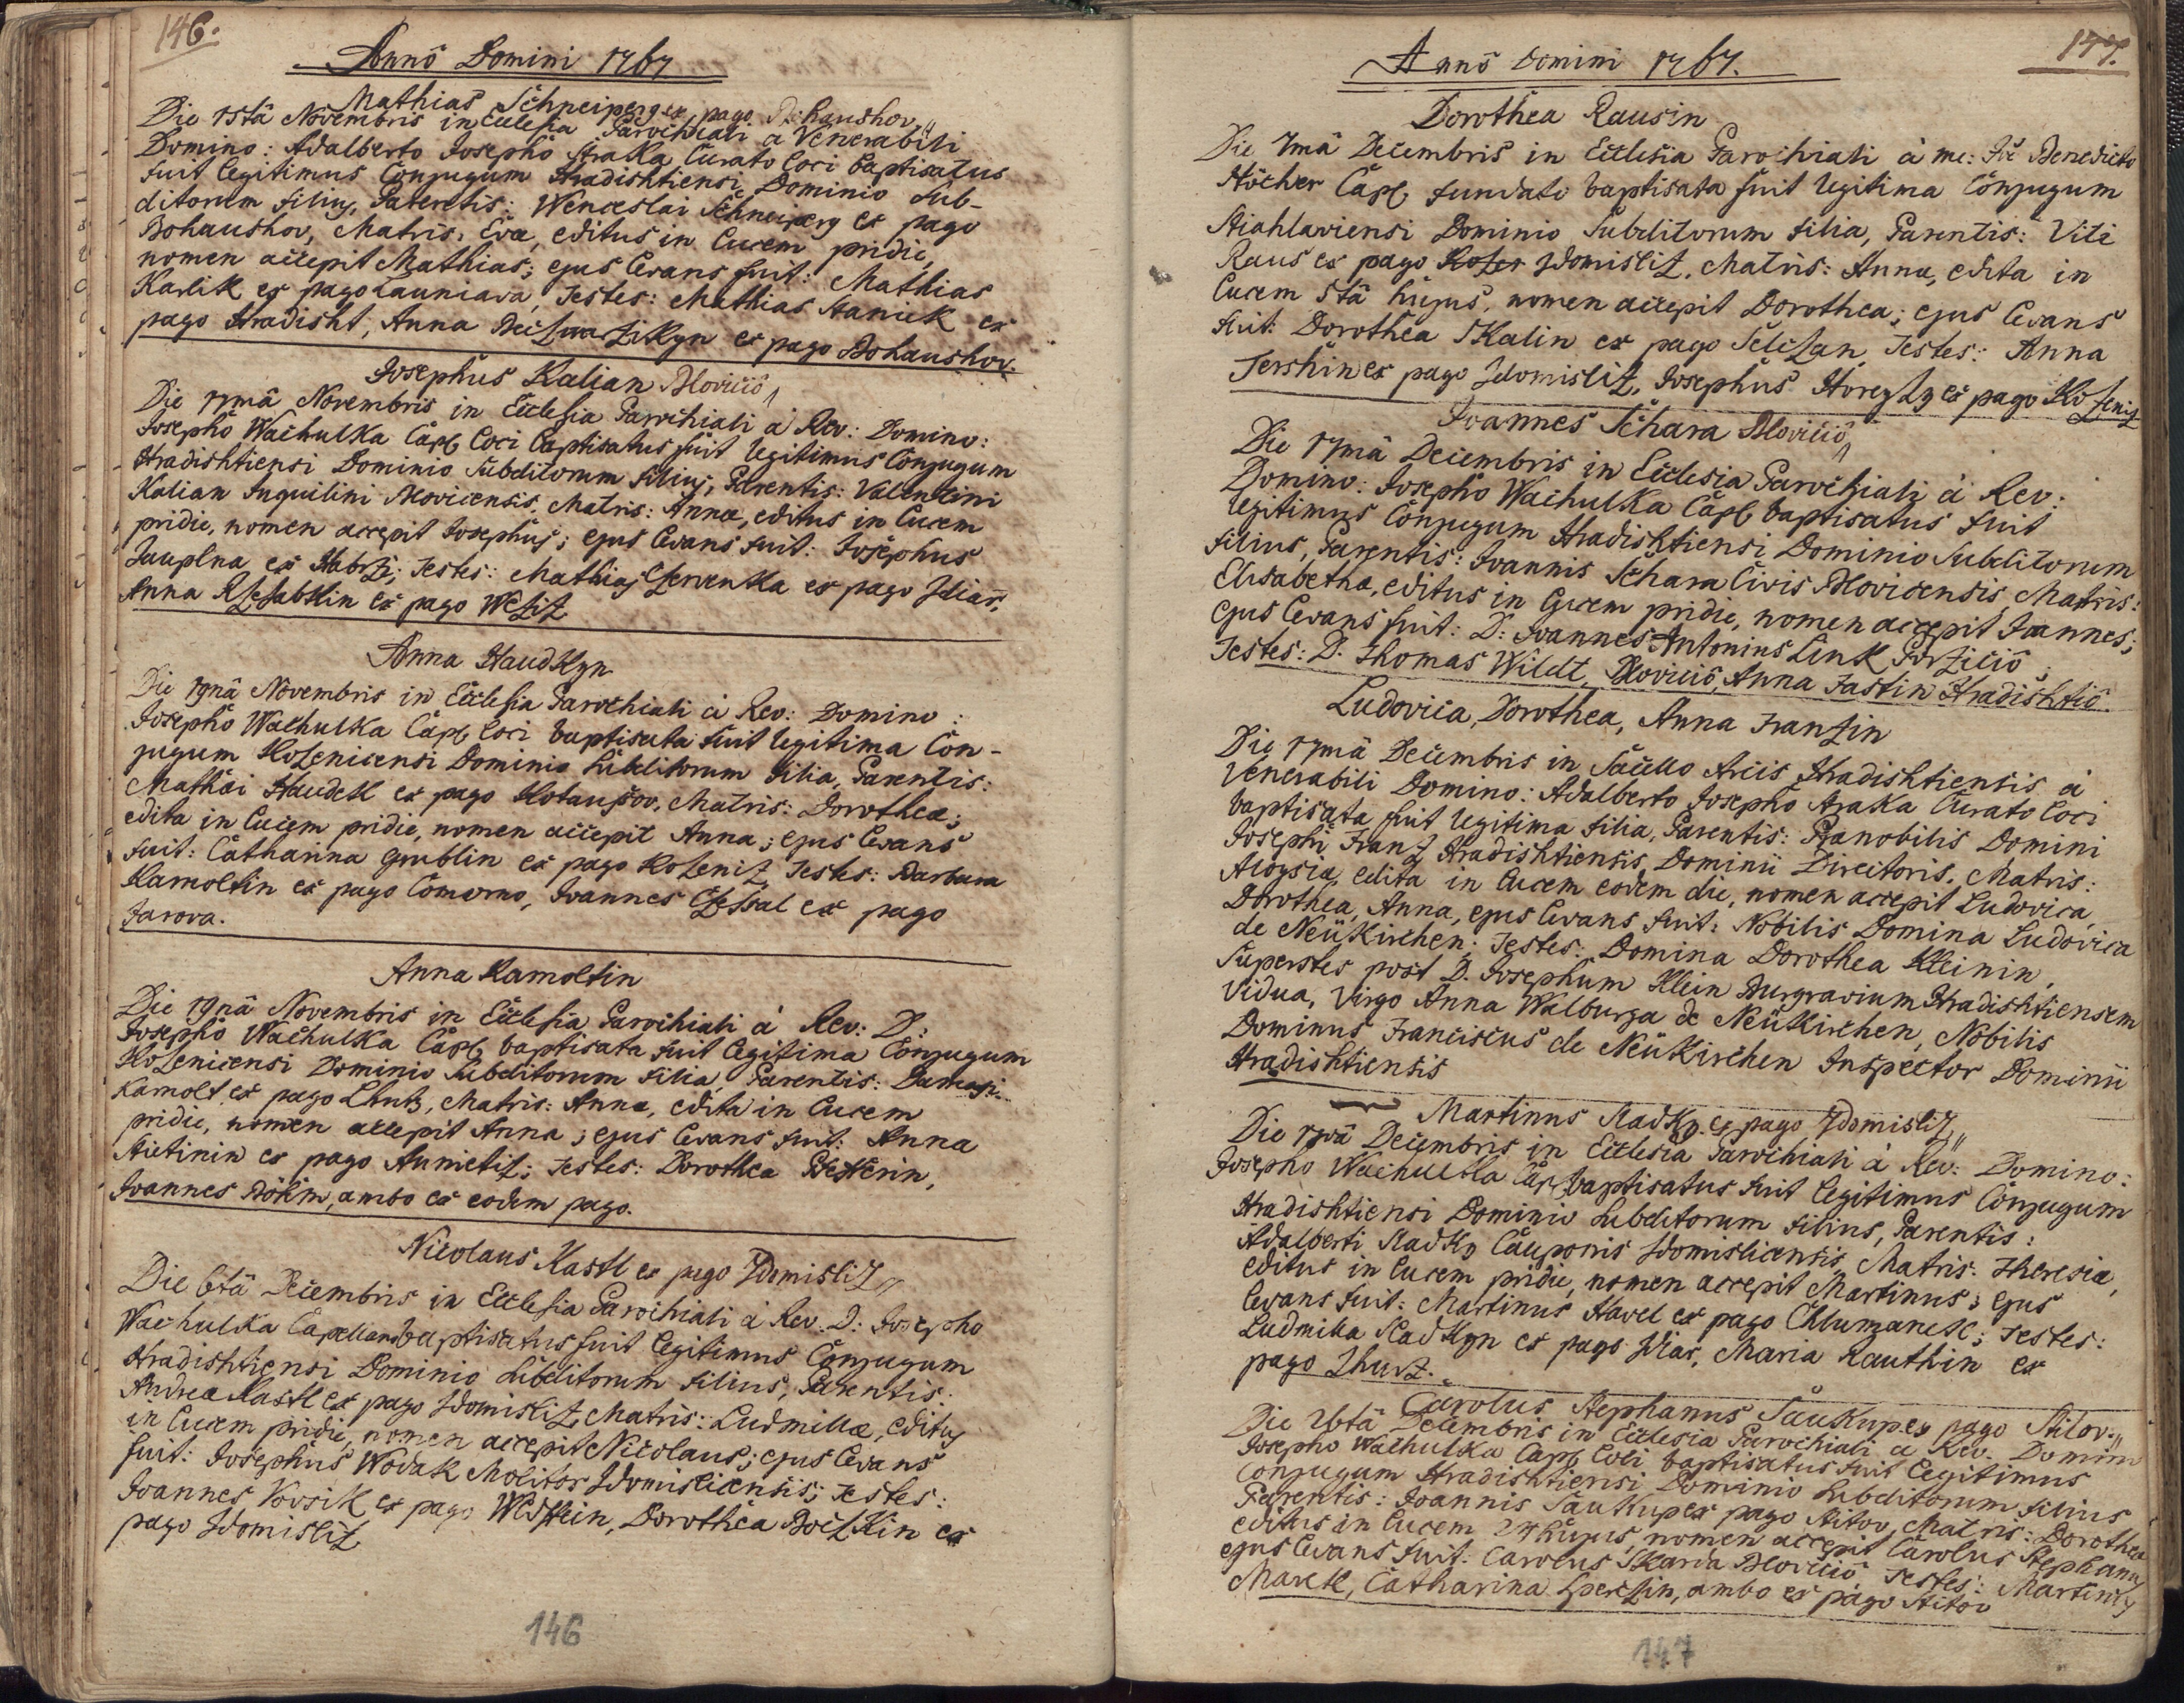 146.
Anno Domini 1767
Mathias Schneiperg ex pago Bohaushov
Die 15tâ Novembris in Ecclesia Parochiali a Venerabili
Domino: Adalberto Josepho Straka Curato loci baptisatus
fuit legitimus Conjugum Hradishtiensi Dominio Sub-
ditorum filius, Parentis: Wenceslai Schneiperg ex pago
Bohaushov, Matris: Eva, editus in lucem pridie,
nomen accepit Mathias; ejus levans fuit: Mathias
Karlik ex pago Launiava, Testes: Mathias Hanick ex
pago Hradisht, Anna ex pago Bohaushov.
Josephus Kalian Blovicio
Die 17mâ Novembris in Ecclesia Parochiali à Rev: Domino:
Josepho Wachulka Capl loci baptisatus fuit legitimus Conjugum
Hradishtiensi Dominio Subditorum filius, Parentis: Valentini
Kalian Inquilini Blovicensis, Matris: Anna, editus in lucem
pridie, nomen accepit Josephus; ejus levans fuit: Josephus
Jauplna ex Habrzi; Testes: Mathias Czerwenka ex pago Zdiar,
Anna Rzesabkin ex pago Wesiz
Anna Haudkyn
Die 19nâ Novembris in Ecclesia Parochiali à Rev: Domino:
Josepho Wachulka Capl loci baptisata fuit legitima Con-
jugum Kozenicensi Dominio Subditorum filia, Parentis:
Mathäi Haudek ex pago Kotaussov, Matris: Dorothea;
edita in lucem pridie, nomen accepit Anna; ejus levans
fuit: Catharina Grublin ex pago Kozeniz, Testes: Barbara
Kamoltin ex pago Comorno, Joannes Czessal ex pago
Jarova.
Anna Kamoltin
Die 19nâ Novembris in Ecclesia Parochiali à Rev: D:
Josepho Wachulka Capl baptisata fuit legitima Conjugum
Kozenicensi Dominio Subditorum filia, Parentis: Damasi
Kamolt ex pago Lhutz, Matris: Anna, edita in lucem
pridie, nomen accepit Anna; ejus levans fuit: Anna
Stietinin ex pago Aunietiz; Testes: Dorothea
Joannes Böhm, ambo ex eodem pago.
Nicolaus Kastl ex pago Zdomisliz
Die 6tâ Decembris in Ecclesia Parochiali à Rev. D: Josepho
Wachulka Capellano baptisatus fuit legitimus Conjugum
Hradishtiensi Dominio Subditorum filius, Parentis:
Andrea Kastl ex pago Zdomisliz, Matris: Ludmilla, editus
in lucem pridie, nomen accepit Nicolaus; ejus levans
fuit: Josephus Wodak Molitor Zdomislicensis; Testes:
Joannes Vorsik ex pago Wldstein, Dorothea Boczkin ex
pago Zdomisliz
146
147.
Anno Domini 1767.
Dorothea Rausin
Die 7mâ Decembris in Ecclesia Parochiali à me: Joê Benedicto
Höcher Capl fundato baptisata fuit legitima Conjugum
Stiahlaviensi Dominio Subditorum filia, Parentis: Viti
Raus ex pago Zdomisliz, Matris: Anna, edita in
lucem 5tâ hujus, nomen accepit Dorothea; ejus levans
fuit: Dorothea Skalin ex pago Selczan, Testes: Anna
Tershin ex pago Zdomisliz, Josephus Horeyzy ex pago Kozeniz
Joannes Schara Blovicio
Die 17mâ Decembris in Ecclesia Parochiali à Rev:
Domino: Josepho Wachulka Capl baptisatus fuit
legitimus Conjugum Hradishtiensi Dominio Subditorum
filius, Parentis: Joannis Schara Civis Blovicensis, Matris:
Elisabetha, editus in lucem pridie, nomen accepit Joannes;
ejus levans fuit: D: Joannes Antonius Link Porzicio
Testes: D. Thomas Wildt, Blovicio, Anna Fastin Hradishtio.
Ludovica, Dorothea, Anna Franzin
Die 17mâ Decembris in Sacello Arcis Hradishtiensis à
Venerabili Domino: Adalberto Josepho Straka Curato loci
baptisata fuit legitima filia, Parentis: Pranobilis Domini
Josephi Franz Hradishtiensis Dominii Directoris, Matris:
Aloysia, edita in lucem eodem die, nomen accepit Ludovica,
Dorothea, Anna, ejus levans fuit: Nobilis Domina Ludovica
de Neükirchen; Testes: Domina Dorothea Kleinin,
Superstes post D. Josephum Klein Burgravium Hradishtiensem
Vidua, Virgo Anna Walburga de Neükirchen, Nobilis
Dominus Franciscus de Neükirchen Inspector Dominii
Hradishtiensis
Martinus Kadky ex pago Zdomisliz
Die 17mâ Decembris in Ecclesia Parochiali à Rev: Domino:
Josepho Wachulka Cap baptisatus fuit legitimus Conjugum
Hradishtiensi Dominio Subditorum filius, Parentis:
Adalberti Kadky Cauponis Zdomislicensis, Matris: Theresia,
editus in lucem pridie, nomen accepit Martinus; ejus
levans fuit: Martinus Havel ex pago Chlumanek; Testes:
Ludmilla Kadkyn ex pago Zdiar, Maria Rauthin ex
pago Lhutz.
Carolus Stephanus Saukup ex pago Stitov
Die 26tâ Decembris in Ecclesia Parochiali a Rev. Domino
Josepho Wachulka Capl loci baptisatus fuit legitimus
Conjugum Hradishtiensi Dominio Subditorum filius
Parentis: Joannis Saukup ex pago Stitov, Matris: Dorothea
editus in lucem 24 hujus, nomen accepit Carolus Stephanus
ejus levans fuit: Carolus Skarda Blovicio Testes: Martinus
Marek, Catharina Sperlin, ambo ex pago Stitov
147